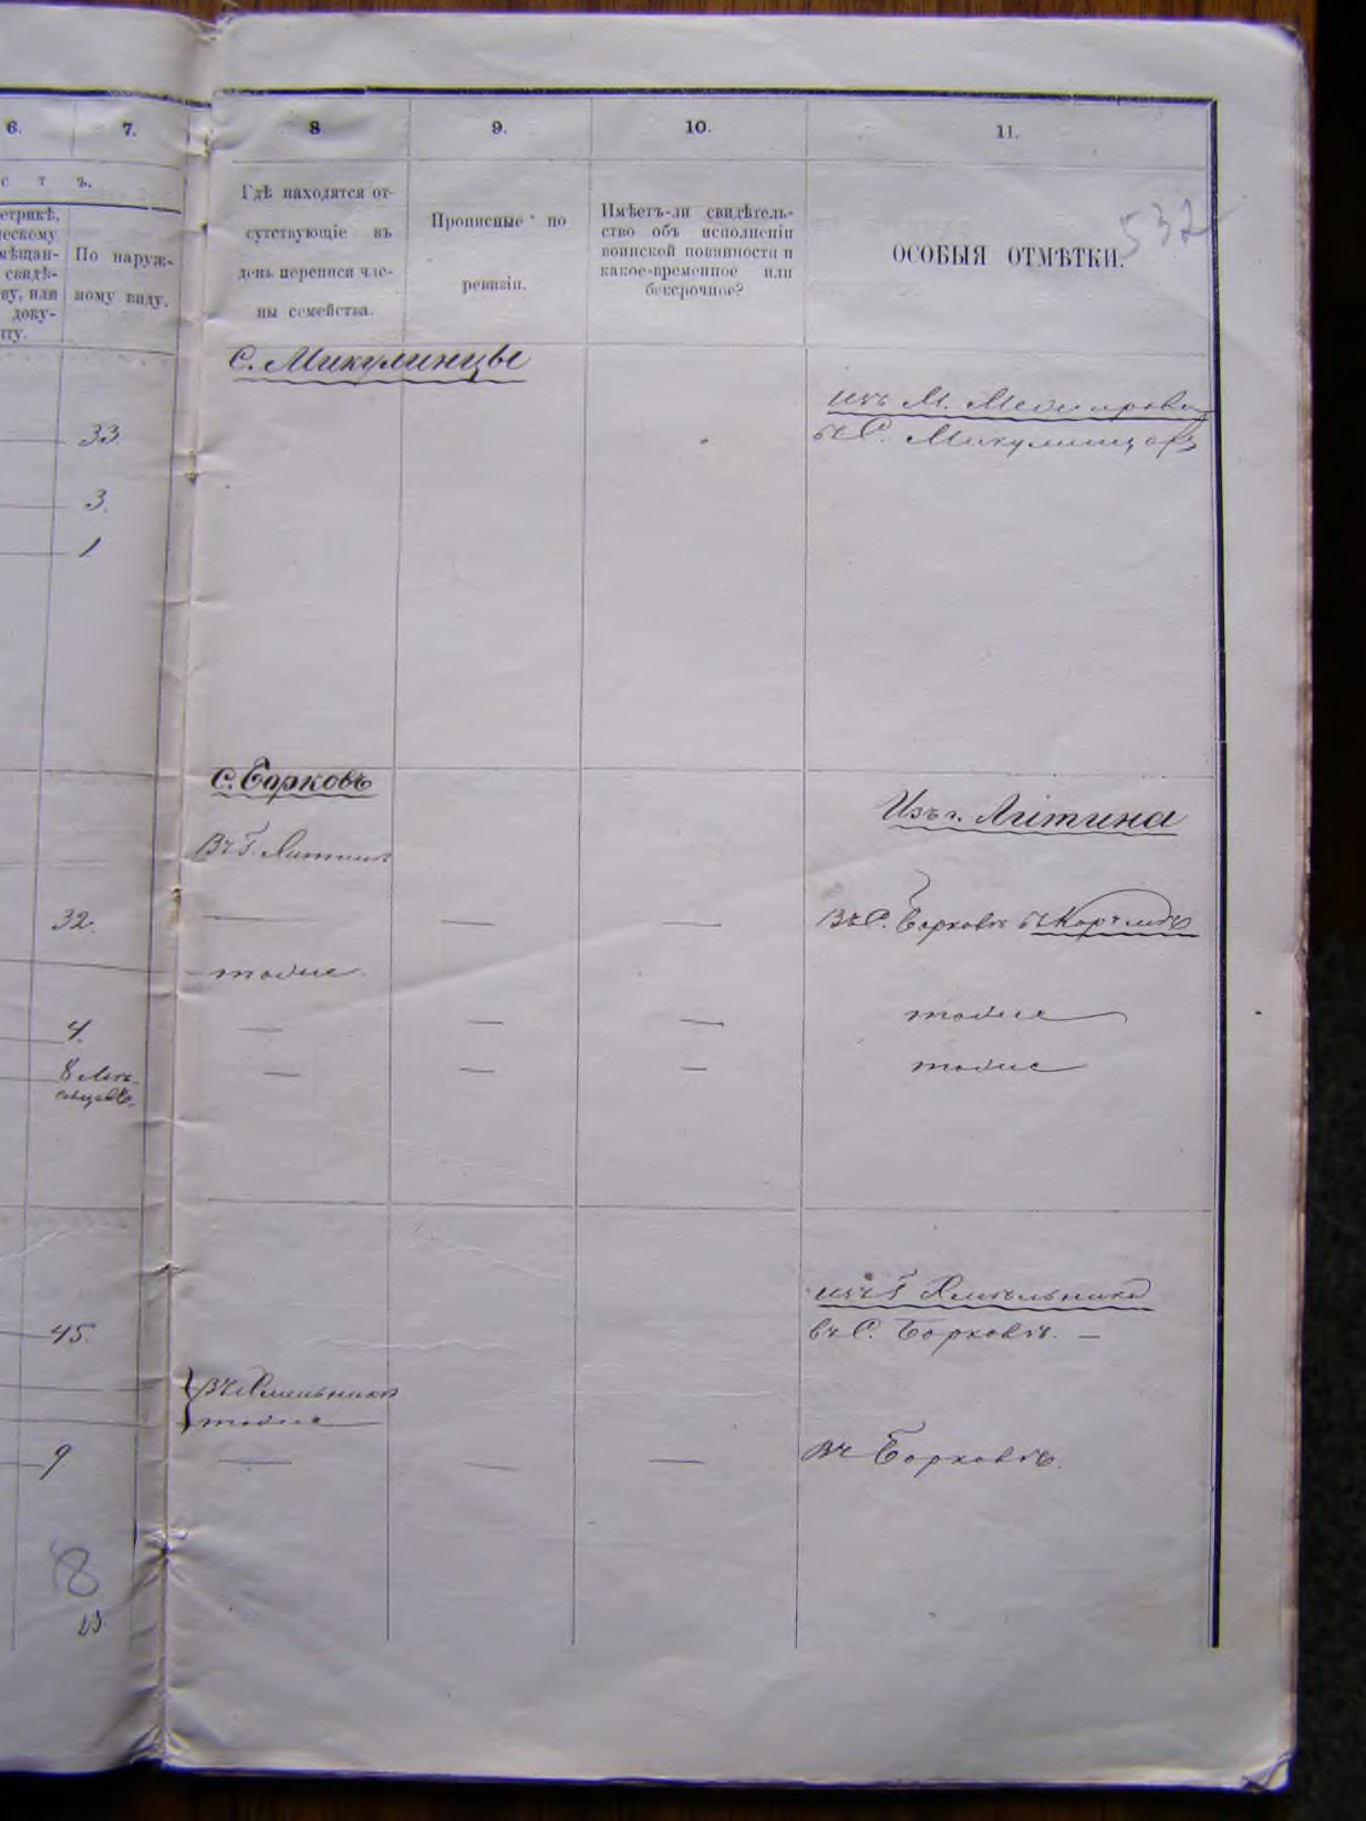 6.
7.
8
9.
10.
11.
с т ъ.
етрикѣ,
ческому
мѣщан-
свидѣ-
ву, или
доку-
нту.
По наруж-
ному виду.
Гдѣ находятся от-
сутствующіе въ
день переписи чле-
ны семейства.
Прописные по
ревизіи.
Имѣетъ-ли свидѣтель-
ство объ исполненіи
воинской повинности и
какое-временное или
безсрочное?
ОСОБЫЯ ОТМѢТКИ.
532
С. Микулинцы
изъ М.
33.
С. Микулинцахъ
3.
1
С. Борковъ
Изъ г. Литина
Въ Г. Литинѣ
32.
Въ С. Борковѣ
тоже
4.
тоже
8 мѣ-
сяцевъ.
тоже
изъ Г Хмѣльника
45.
въ С. Борковѣ. —
Въ Хмельникѣ
тоже
9
Въ Борковѣ.
8